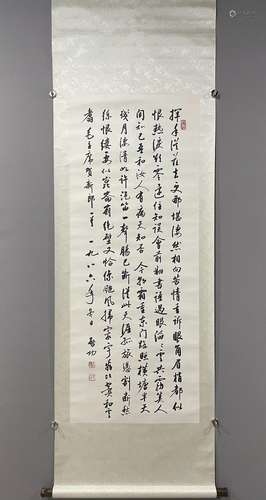 揮手從茲去更那堪凄然相向苦情重訴眼角眉梢都似
恨熱淚欲零還住知誤會前翻書語過眼滔滔雲共霧算人
間知己吾和汝人有病天知否今朝霜重東門路照橫塘半天
殘月凄清如許汽笛一聲腸已斷從此天涯孤旅憑割斷愁
絲恨縷要似崑崙崩絕壁又恰像颱風掃寰宇重比翼和雲
翥毛主席賀新郎一首一九八六年冬日啟功